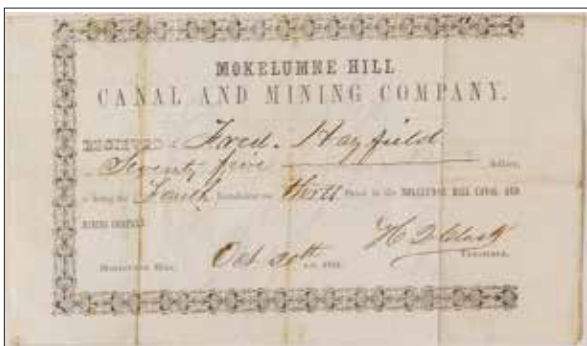 MOKELUMNE HILL
CANAL AND MINING COMPANY.
RECEIVED of Fred. Hayfield
Seventy five Dollars,
being the Fourth Instalment on three Shares in the MOKELUMNE HILL CANAL AND
MINING COMPANY.
MOKELUMNE HILL, Oct. 20th
TREASURER.